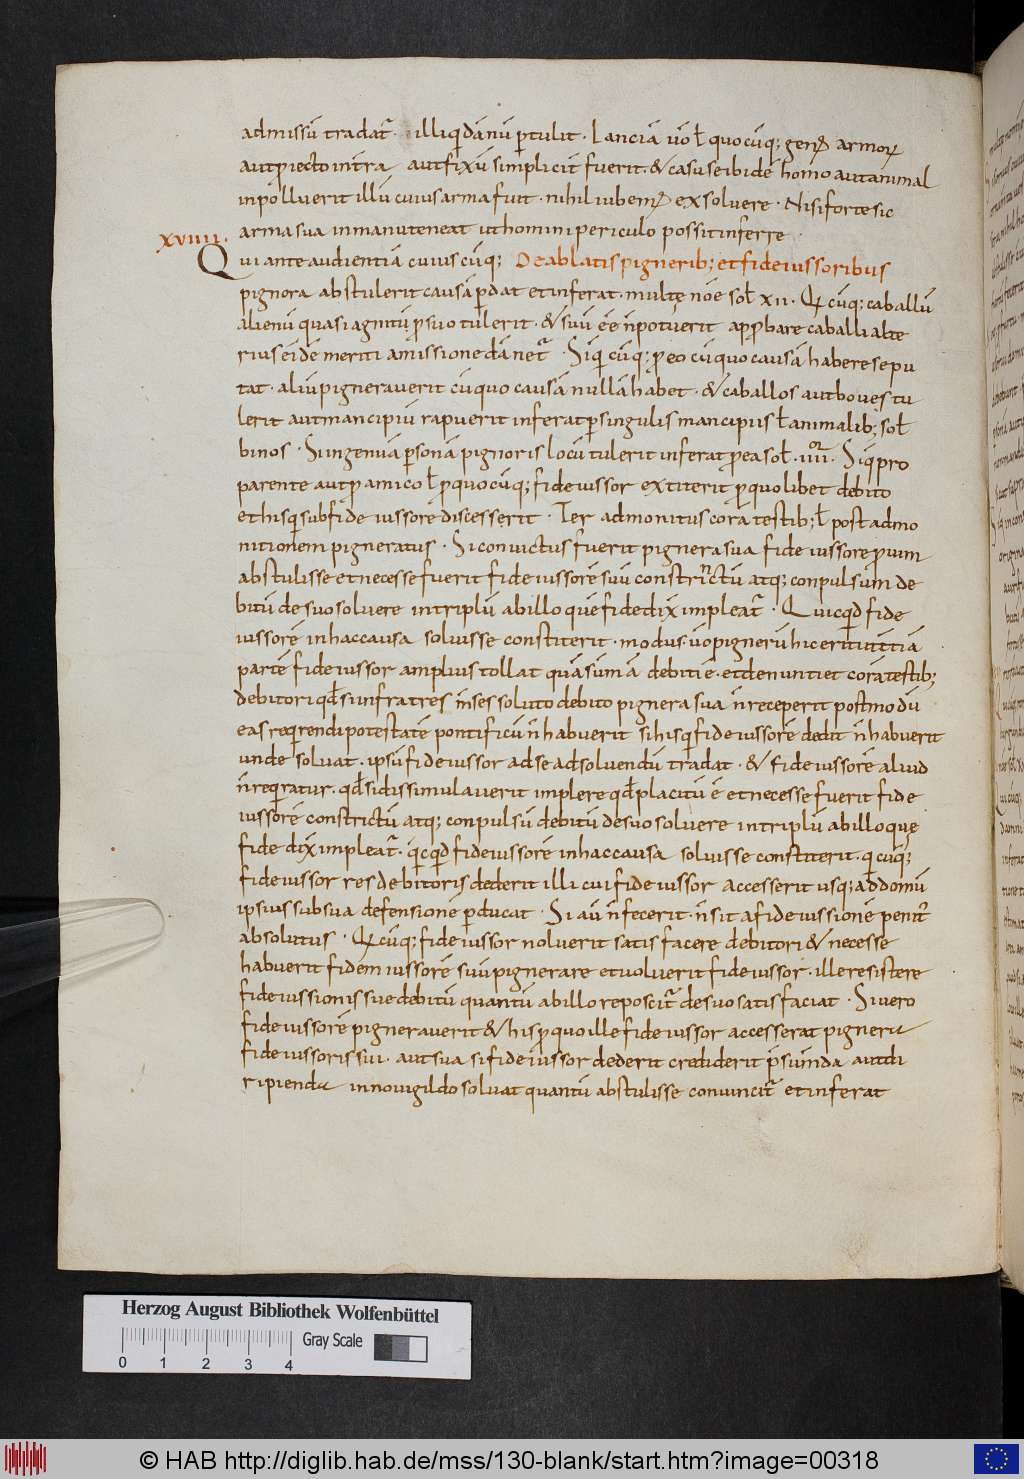 admissū tradat᷑ · illi qͥ dānū ꝑtulit · Lanciā ūo ł quocūq; genꝰ armoꝝ
aut ꝓiecto intra aut fixū simplicit̄ fuerit · & casu se ibidē homo aut animal
inpolluerit illū cuius arma fuit · nihil iubemꝰ exsoluere · Nisi forte sic
arma sua in manu teneat ut homini periculo possit inferre ·
XVIIII.
Qui ante audientiā cuiuscūq; De ablatis pignerib; et fideiussoribus
pignora abstulerit causā ꝑdat et inferat · multę nōe soł XII · Qͥcūq; caballū
alienū quasi agnitū ꝓ suo tulerit · & suū ēē n̄ potuerit apꝓbare caballi alte
rius eidē meriti amissione dānet᷑ · Si qͥcūq; ꝓ eo cū quo causā habere se pu
tat · aliū pigneraverit cū quo causā nullā habet · & caballos aut boves tu
lerit aut mancipiū rapuerit inferat ꝑ singulis mancipiis ł animalib; soł
binos · Si ingenuā ꝑsonā pignoris locū tulerit inferat ꝓ ea soł · IIII · Siqͥ pro
parente aut ꝓ amico ł ꝓ quocūq; fideiussor extiterit ꝓ quolibet debito
et his qͥ sub fideiussore discesserit · Ter admonitus corā testib; ł post admo
nitionem pigneratus · Si convictus fuerit pignera sua fideiussore ꝓ uim
abstulisse et necesse fuerit fideiussorē suū constrinctū atq; conpulsum de
bitū de suo solvere in triplū ab illo que fidedixim impleat᷑ · Quicqͥd fide
iussorē in hac causa solvisse constiterit · modus ūo pignerū hic erit ut tͥtiā
partē fideiussor amplius tollat quā summā debiti ē · et denuntiet corā testib;
debitori qđ si infra tres m̄ses soluto debito pignera sua n̄ receperit postmodū
eas reqͥrendi potestatē pontificū n̄ habuerit si his qͥ fideiussorē dedit n̄ habuerit
unde solvat · ipsū fideiussor ad se adsolvendū tradat · & fideiussorē aliud
n̄ reqͥratur · qđ si dissimulaverit implere qđ placitū ē et necesse fuerit fide
iussorē constrictū atq; conpulsū debitū de suo solvere in triplū ab illo que
fide dix̄ impleat᷑ · qͥcqͥd fideiussorē in hac causa solvisse constiterit · qͥcūq;
fideiussor res debitoris dederit illi cui fideiussor accesserit usq; ad domū
ipsius sub sua defensionē ꝑducat · Si aū n̄ fecerit · n̄ sit a fideiussionē penit᷒
absolutus · Qͥcūq; fideiussor noluerit satisfacere debitori & necesse
habuerit fidem iussorē suū pignerare et voluerit fideiussor · ille resistere
fideiussionis sue debitū quantū ab illo reposcit᷑ de suo satisfaciat · Si vero
fideiussorē pigneraverit & his ꝓ quo ille fideiussor accesserat pigneru
fideiussoris sui · aut sua si fideiussor dederit crediderit p̄sumda aut di
ripienda in novigildo solvat quantū abstulisse convincit᷑ et inferat
Herzog August Bibliothek Wolfenbüttel
Gray Scale
0 1 2 3 4
© HAB http://diglib.hab.de/mss/130-blank/start.htm?image=00318